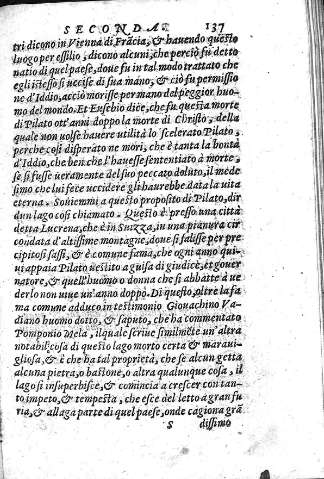 SECONDA. 137
tri dicono in Vienna di Frãcia, & hauendo questo
luogo per essilio, dicono alcuni, che perciò fu detto
natio di quel paese, doue fu in tal modo trattato che
egli istesso si uccise di sua mano, & ciò fu permissio
ne d'Iddio, acciò morisse per mano del peggior huo-
mo del mondo. Et Eusebio dice, che fu questa morte
di Pilato ott'anni doppo la morte di Christo, della
quale non uolse hauere utilità lo scelerato Pilato,
perche così disperato ne morì, che è tanta la bontà
d'Iddio, che ben che l'hauesse sententiato à morte,
se si fusse ueramente del suo peccato doluto, il mede
simo che lui fece uccidere gli haurebbe data la uita
eterna. Souiemmi a questo proposito di Pilato, dir
d'un lago così chiamato. Questo è presso una città
detta Lucrena, che è in Suizza, in una pianura cir
condata d'altissime montagne, doue si salisse per pre
cipitosi sassi, & è comune fama, che ogni anno qui-
ui appaia Pilato uestito a guisa di giudice, et gouer
natore, & quell'huomo o donna che si abbatte à ue
derlo non uiue un'anno doppò. Di questo, oltre la fa
ma comune adduco in testimonio Giouachino Va-
diano huomo dotto, & saputo, che ha commentato
Pomponio Mela, il quale scriue similmẽte un'altra
notabil cosa di questo lago molto certa & maraui-
gliosa, & è che ha tal proprietà, che se alcun getta
alcuna pietra, o bastone, o altra qualunque cosa, il
lago si insuperbisce, & comincia a crescer con tan-
to impeto, & tempesta, che esce del letto à gran fu
ria, & allaga parte di quel paese, onde cagiona grã
S dissimo